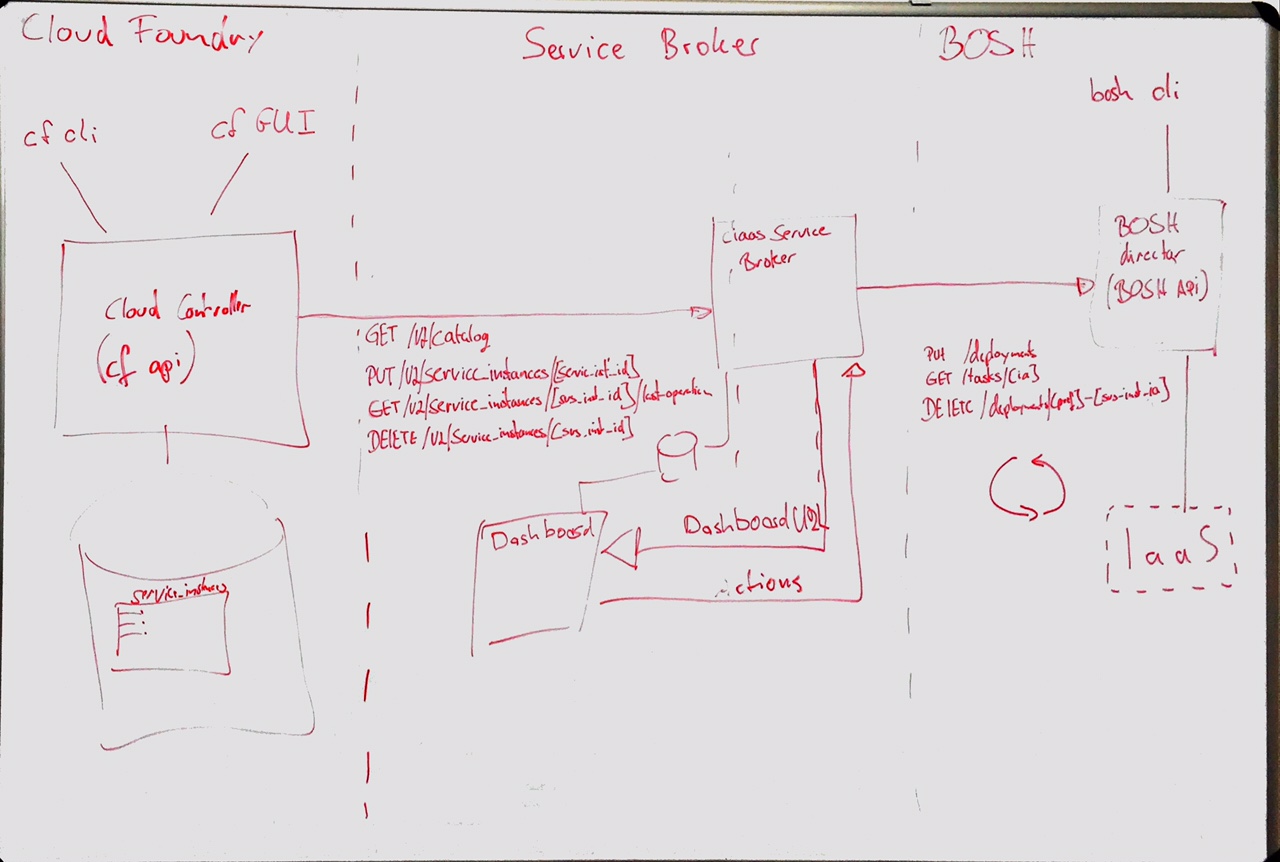 Cloud Foundry
Service Broker
BOSH
cf cli
cf GUI
bosh cli
Cloud Controller
(cf api)
GET /v2/catalog
PUT /v2/service_instances/[servic_inst_id]
GET /v2/service_instances/[svs_int_id]/last-operation
DELETE /v2/service_instances/[svs_int_id]
service_instances
Ciaas Service
Broker
Dashboard
Dashboard URL
actions
BOSH
director
(BOSH Api)
PUT /deployments
GET /tasks/[id]
DELETE /deployments/[pref]-[svs-inst-id]
IaaS